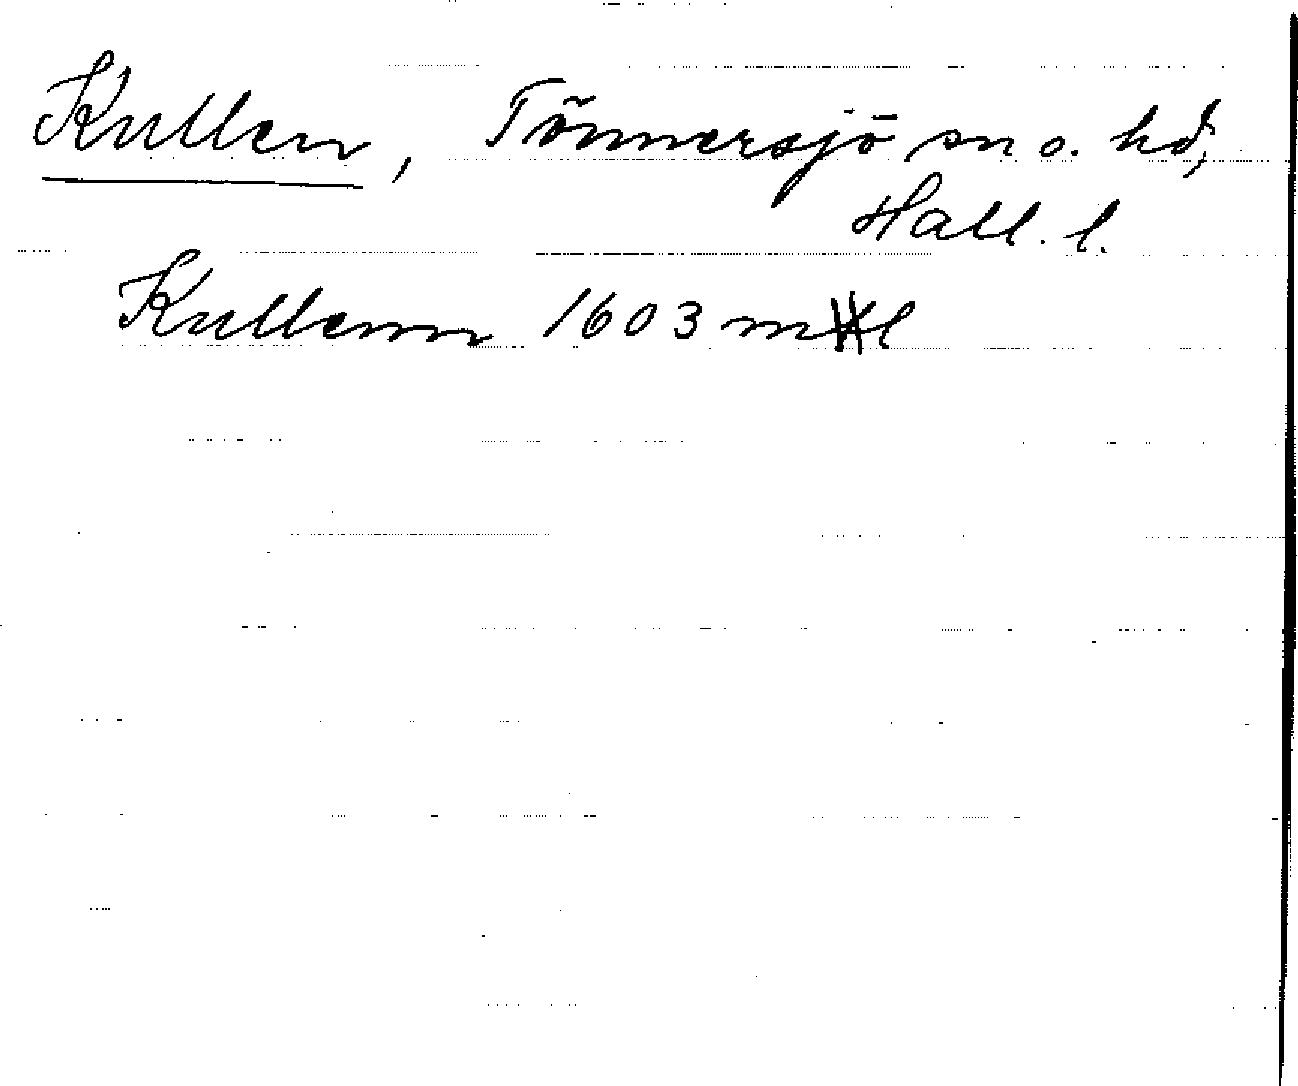 Kullen, Tönnersjö sn o. hd,
Hall. l.
Kullenn 1603 ml